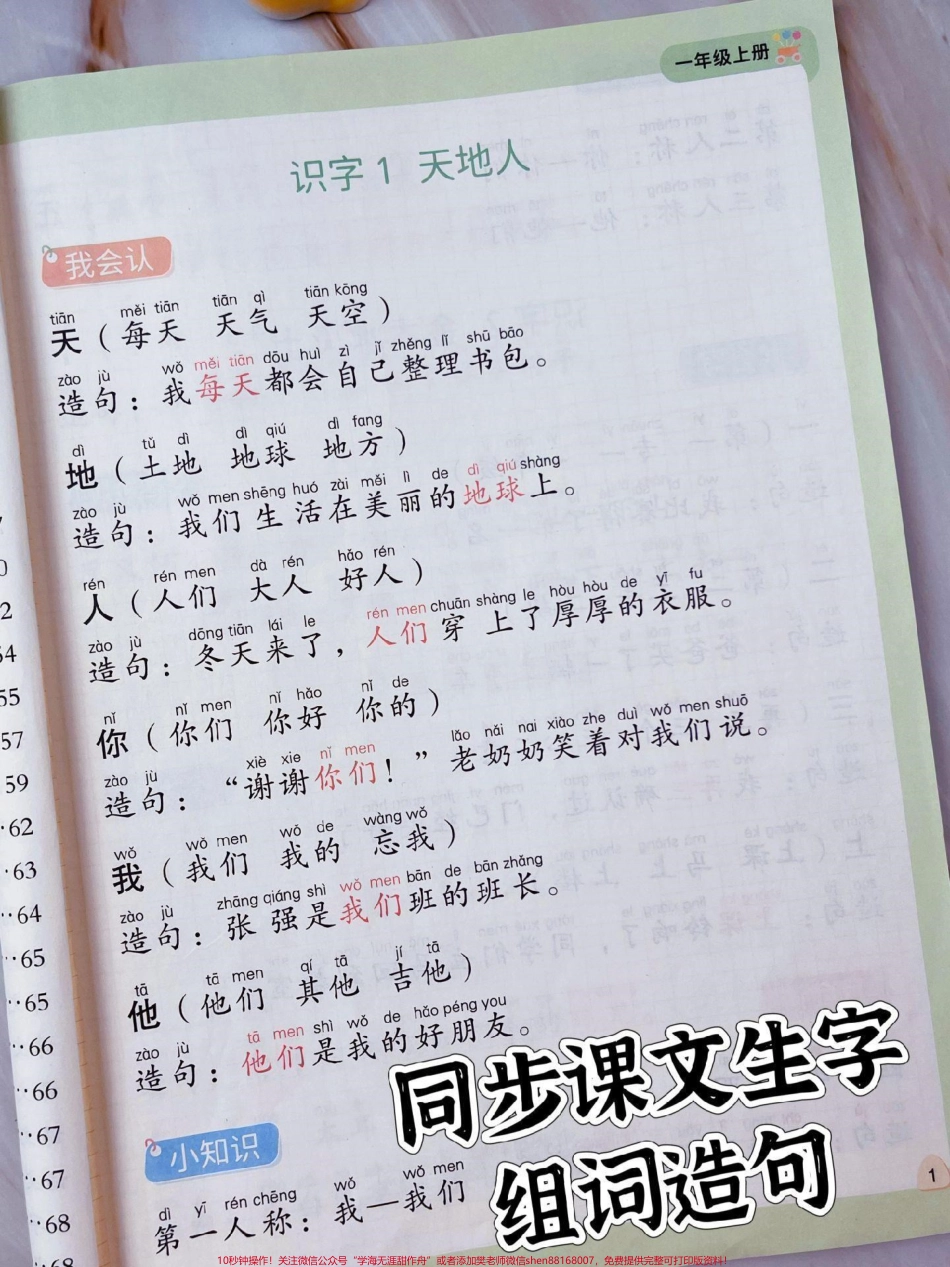 一年级上册
识字1 天地人
我会认
tiān měi tiān tiān qì tiān kōng
天（每天 天气 天空）
zào jù wǒ měi tiān dōu huì zì jǐ zhěng lǐ shū bāo
造句：我每天都会自己整理书包。
dì tǔ dì dì qiú dì fang
地（土地 地球 地方）
zào jù wǒ men shēng huó zài měi lì de dì qiú shàng
造句：我们生活在美丽的地球上。
rén rén men dà rén hǎo rén
人（人们 大人 好人）
zào jù dōng tiān lái le rén men chuān shàng le hòu hòu de yī fu
造句：冬天来了，人们穿上了厚厚的衣服。
nǐ nǐ men nǐ hǎo nǐ de
你（你们 你好 你的）
zào jù xiè xie nǐ men lǎo nǎi nai xiào zhe duì wǒ men shuō
造句：“谢谢你们！”老奶奶笑着对我们说。
wǒ wǒ men wǒ de wàng wǒ
我（我们 我的 忘我）
zào jù zhāng qiáng shì wǒ men bān de bān zhǎng
造句：张强是我们班的班长。
tā tā men qí tā jí tā
他（他们 其他 吉他）
zào jù tā men shì wǒ de hǎo péng you
造句：他们是我的好朋友。
小知识
dì yī rén chēng wǒ wǒ men
第一人称：我—我们
同步课文生字
组词造句
1
55
57
59
62
63
64
65
66
66
67
67
68
10秒钟操作！关注微信公众号“学海无涯甜作舟”或者添加樊老师微信shen88168007，免费提供完整可打印版资料！